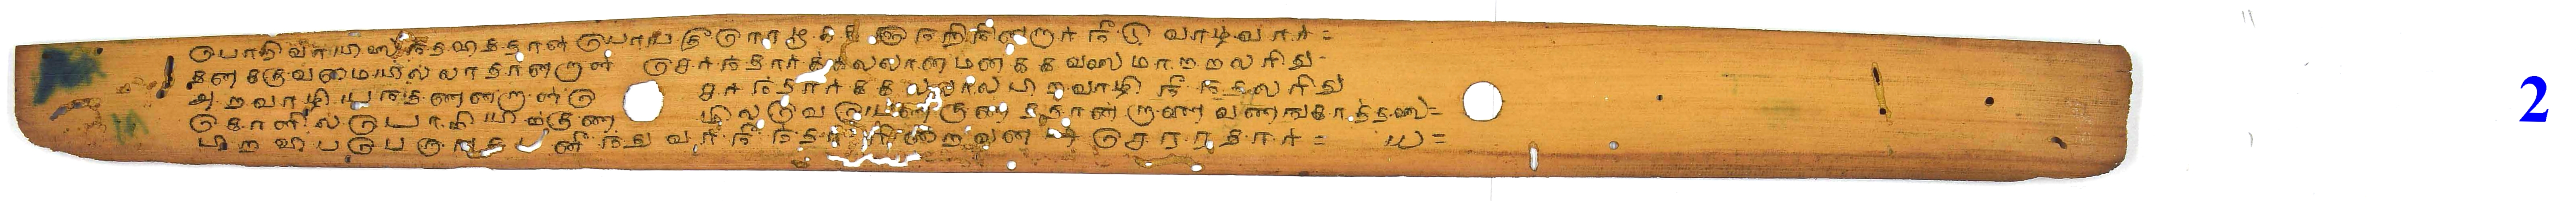 பொறிவாயிலைந்தவித்தான் பொய்தீரொழுக்க நெறிநின்றார் நீடு வாழ்வார் =
தனக்குவமையில்லாதான்றாள் சேர்ந்தார்க்கல்லான் மனக்கவலை மாற்றலரிது
அறவாழியந்தணன்றாள்சே சர்ந்தார்க்கல்லால் பிறவாழி நீந்தலரிது
கோளில்பொறியிற்குண மிலவேயெண்குணத்தான் றாளை வணங்காத்தலை =
பிறவிப்பெருங்கடனீந்துவர்நீந்தார் றிறைவன் அடி சேராதார் = ய =
2